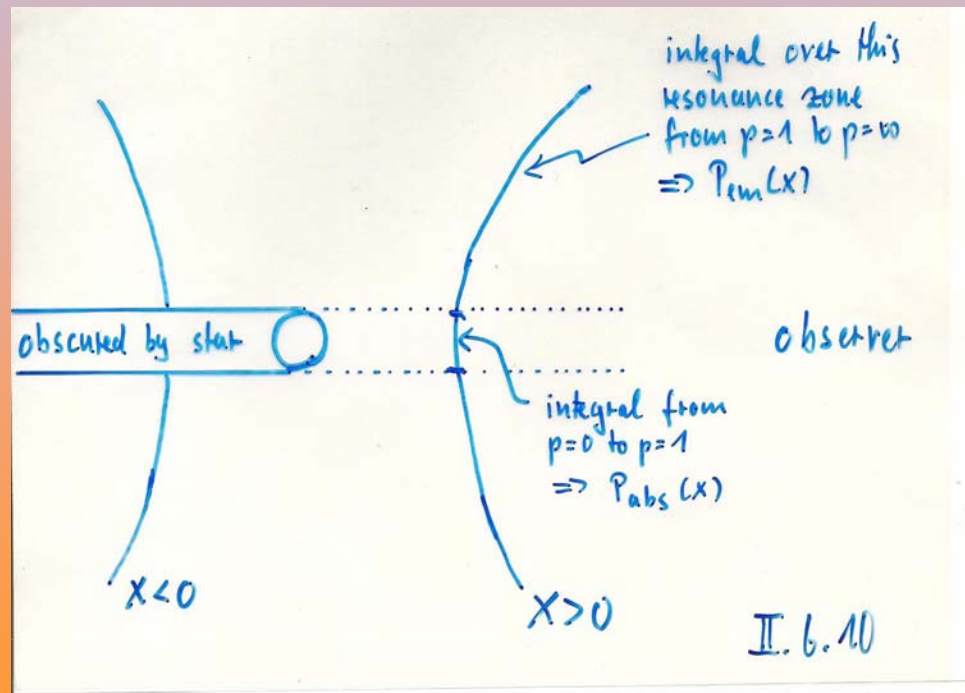 integral over this
resonance zone
from p=1 to p=∞
=> Pem(x)
obscured by star
observer
integral from
p=0 to p=1
=> Pabs(x)
x<0
x>0
II.6.10